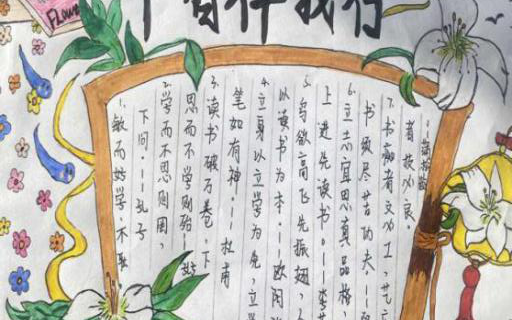 书香伴我行
1、敏而好学,不耻
下问。——孔子
2、学而不思则罔,
思而不学则殆——
3、读书破万卷,下
笔如有神。——杜甫
4、立身以立学为先,立
以读书为本。——欧阳
5、鸟欲高飞先振翅,
上进先读书。——李苦
6、立志宜思真品格,
书须尽苦功夫——阮
7、书痴者文必工,艺
者技必良。
——蒲松龄